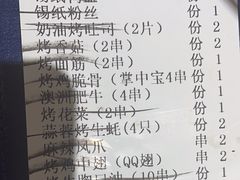 锡纸粉丝 份 1
奶油烤吐司（2片） 份 2
烤香菇（2串） 份 1
烤面筋（2串） 份 1
烤鸡脆骨（掌中宝4串 份 1
澳洲肥牛（4串） 份 2
烤花菜（2串） 份 1
蒜蓉烤生蚝（4只） 份 1
麻辣凤爪 串 2
烤鸡中翅（QQ翅） 串 2
（10串） 份 1